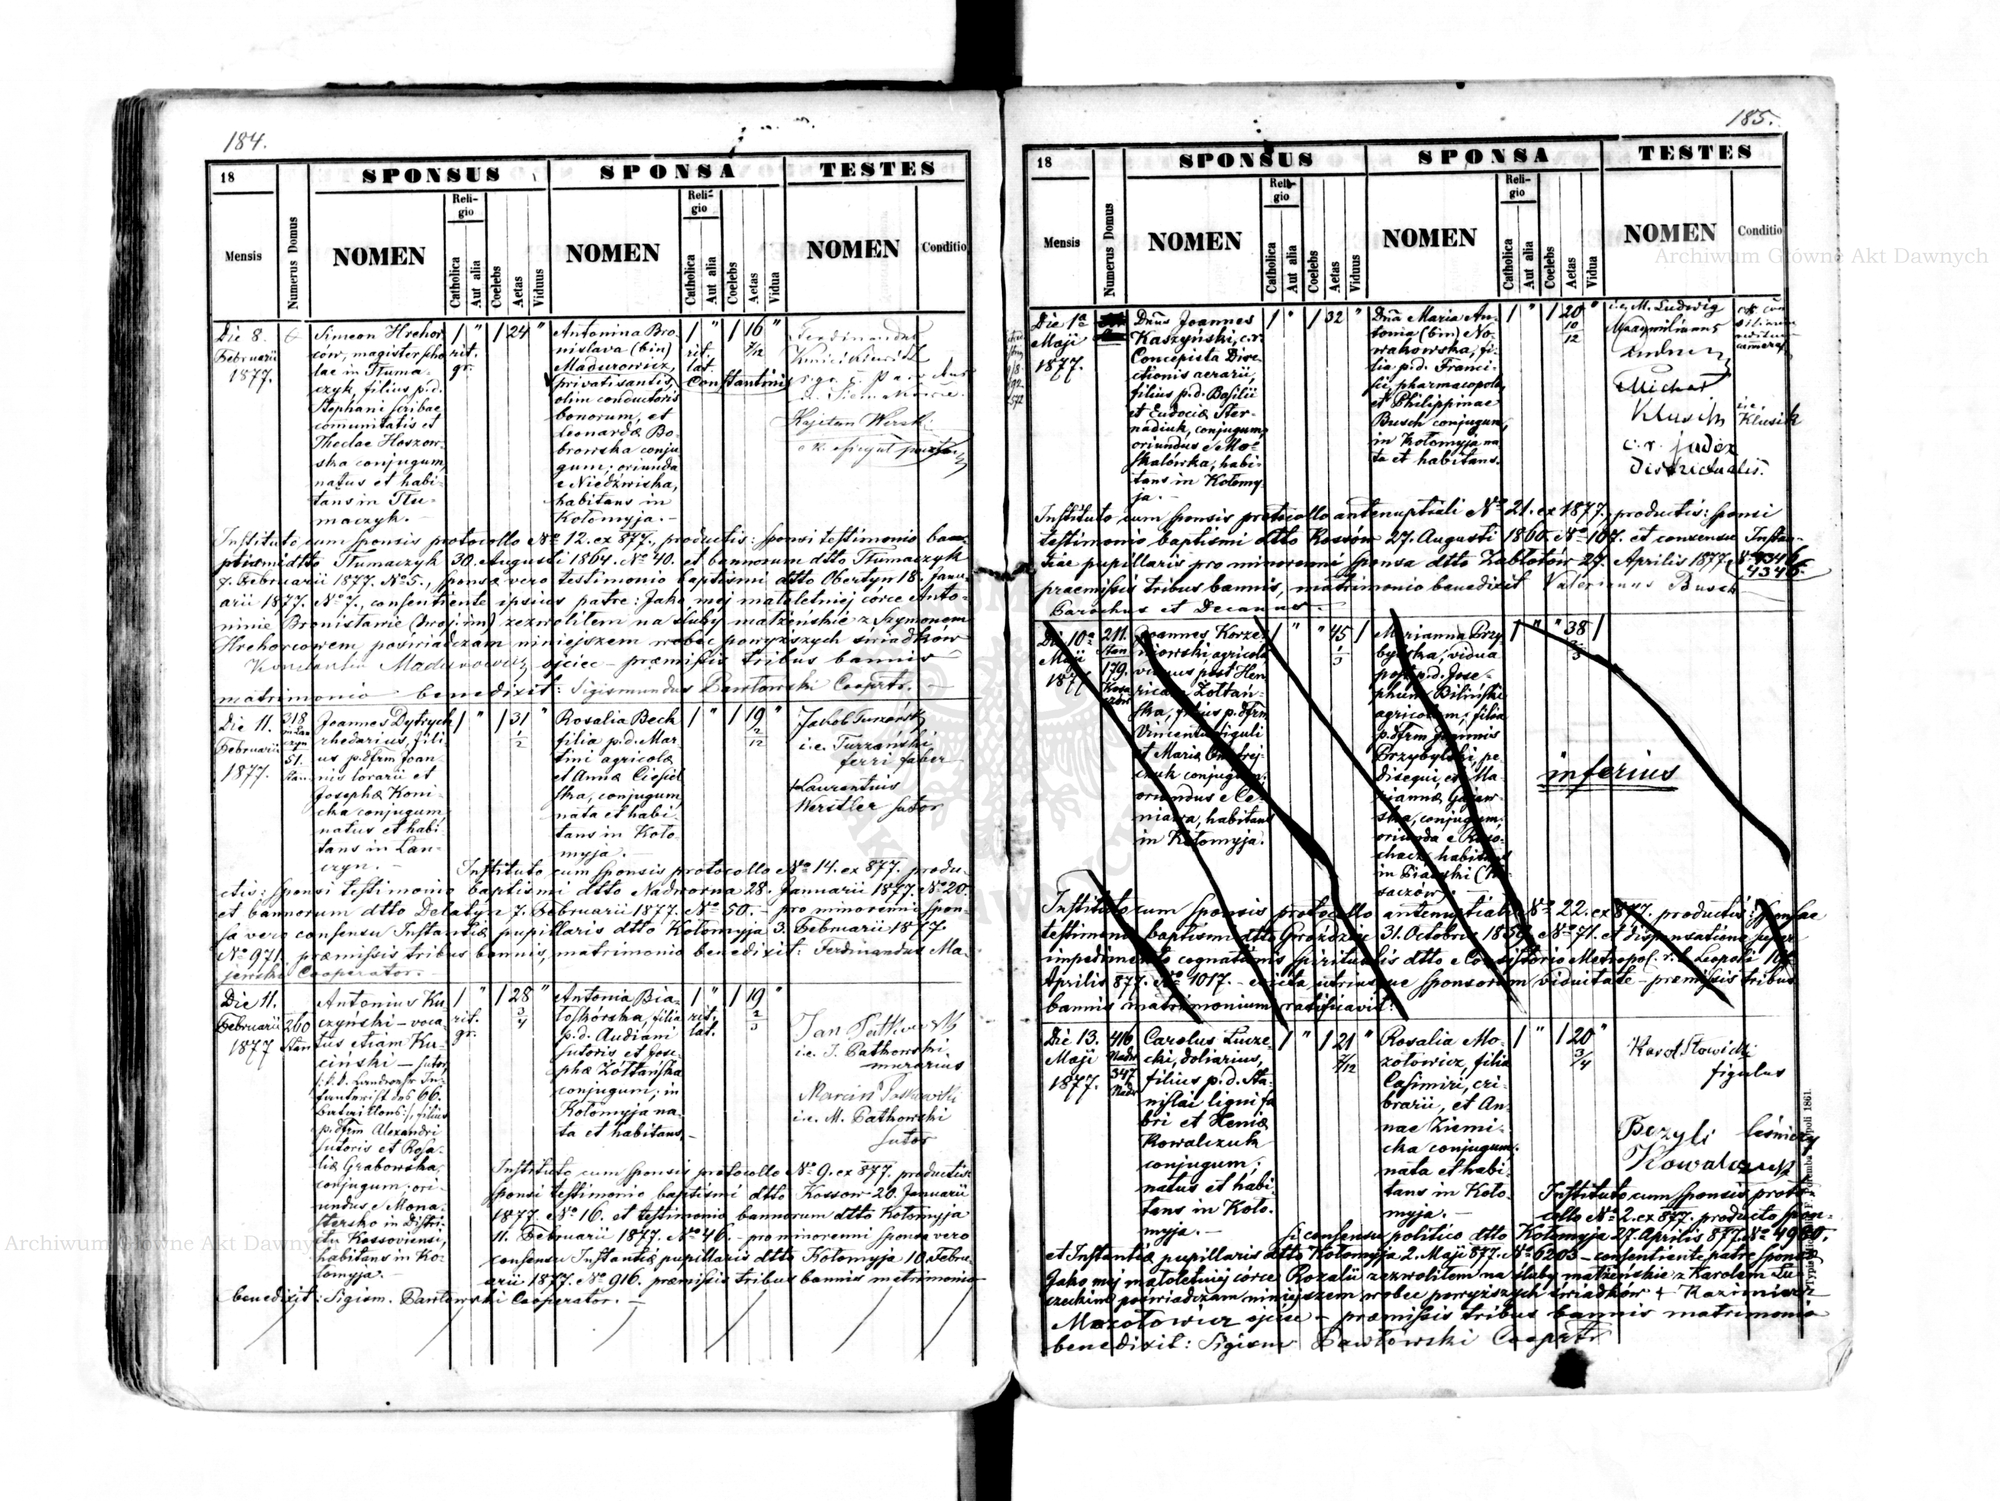 184.
18
SPONSUS
SPONSA
TESTES
Mensis
Numerus Domus
NOMEN
Religio
Catholica
Aut alia
Coelebs
Aetas
Viduus
NOMEN
Religio
Catholica
Aut alia
Coelebs
Aetas
Vidua
NOMEN
Conditio
Die 8.
Februarii
1877.
Simeon Hrehor
cow, magister scho
lae in Tłuma-
czyk, filius p.d.
Stephani scribae
comunitatis et
Theclae Haszow-
ska conjugum,
natus et habi-
tans in Tłu-
maczyk. —
1 " 1 24 "
rit.
gr.
Antonina Bro-
nislava (bin)
Madurowicz,
privatisantis,
olim conductoris
bonorum, et
Leonardae Bo-
browska conju
gum; oriunda
e Niedźwiska,
habitans in
Kołomyja. —
1 " 1 16 "
7/12
rit.
lat.
Constantini
Ferdinandus
Kajetan Werski
Instituto cum sponsis protocollo No 12. ex 877., productis: sponsi testimonio bap-
ptismi dtto Tłumaczyk 30. Augusti 1864. No 40. et bannorum dtto Tłumaczyk
7. Februarii 1877. No 5., sponsae vero testimonio baptismi dtto Obertyn 18. Janu-
arii 1877. No 7., consentiente ipsius patre: Jako mej małoletniej córce Anto-
ninie Bronisławie (dwoj. im) zezwoliłem na śluby małżeńskie z Szymonem
Hrehorcowem, poświadczam niniejszem wobec powyższych świadków
Konstantin Madurowicz, ojciec — praemissis tribus bannis
matrimonio benedixit: Sigismundus Pawłowski Cooprts. —
Die 11.
Februarii
1877.
218
in Lan
czyn
51.
Stan
Joannes Dytrych
rhedarius, fili-
us p.dfrm Joan-
nis lorarii et
Josephae Koni-
cka conjugum
natus et habi
tans in Lan-
czyn. —
1 " 1 31 "
1/2
Rosalia Beck
filia p.d. Mar-
tini agricolae
et Annae Ciesiel
ska, conjugum
nata et habi
tans in Koło-
myja. —
1 " 1 19 "
2/12
Jakob Turzański
i.e. Turzański
ferri faber
+Laurentius
Werstler sutor
Instituto cum sponsis protocollo No 14. ex 877. produ-
ctis: sponsi testimonio baptismi dtto Nadworna 28. Januarii 1877. No 20.
et bannorum dtto Delatyn 7. Februarii 1877. No 50. — pro minorenni spon-
sa vero consensu Instantiae pupillaris dtto Kołomyja 3. Februarii 1877
No 971. praemissis tribus bannis, matrimonio benedixit: Ferdinandus Ma-
jerski Cooperator. —
Die 11.
Februarii
1877
260
Stan
Antonius Ku-
czyński — voca-
tus etiam Ku-
ciński — sutor,
k.k. Landwehr In-
fanterist des 66.
Bataillons, filius
p.dfrm Alexandri
sutoris et Rosa-
liae Grabowska,
conjugum; ori-
undus e Mona-
stersko in distri-
ctu Kossoviensi,
habitans in Ko-
łomyja. —
1 " 1 28 "
3/4
rit.
gr.
Antonia Bia-
łoskorska, filia
p.d. Audiani
sutoris et Jose-
phae Żółtańska
conjugum; in
Kołomyja na-
ta et habitans. —
1 " 1 19 "
2/3
rit.
lat.
Jan Patkowski
i.e. J. Patkowski
murarius
Marcin Patkowski
i.e. M. Patkowski
sutor
Instituto cum sponsis protocollo No 9. ex 877. productis
sponsi testimonio baptismi dtto Kossow 20. Januarii
1877. No 16. et testimonio bannorum dtto Kołomyja
11. Februarii 1877. No 46. — pro minorenni sponsa vero
consensu Instantiae pupillaris dtto Kołomyja 10. Febru-
arii 1877. No 916. praemissis tribus bannis matrimonio
benedixit: Sigism. Pawłowski Cooperator. —
185.
18
SPONSUS
SPONSA
TESTES
Mensis
Numerus Domus
NOMEN
Religio
Catholica
Aut alia
Coelebs
Aetas
Viduus
NOMEN
Religio
Catholica
Aut alia
Coelebs
Aetas
Vidua
NOMEN
Conditio
Die 1a
Maji
1877.
Dnus Joannes
Kaszyński, c.r.
Concepista Dire-
ctionis aerarii,
filius p.d. Basilii
et Eudociae Ster-
nadiuk, conjugum,
oriundus e Mo-
skalówka, habi-
tans in Kołomy-
ja. —
1 " 1 32 "
Dna Maria An-
tonia (bin) No-
wakowska, fi-
lia p.d. Franci-
sci, pharmacopolae
et Philippinae
Busch conjugum,
in Kołomyja na
ta et habitans.
1 " 1 20 "
10/12
i.e. M. Ludwig
Maxymilianus
Michał
Klusik
c.r. judex
Districtualis.
i.e.
Klusik
Instituto cum sponsis protocollo antenuptiali No 21. ex 1877, productis: sponsi
testimonio baptismi dtto Kossów 27. Augusti 1860. No 107. et consensu Instan-
tiae pupillaris pro minorenni sponsa dtto Zabłotów 27. Aprilis 1877. No 4346
4346.
praemissis tribus bannis, matrimonio benedixit Valerianus Busch
Parochus et Decanus —
Die 10a
Maji
1877
211.
Stan
179.
Kosa
czów
Joannes Korze-
niowski agricola
viduus post Hen-
ricam Żółtań-
ska, filius p.dfrm
Vincentii figuli
et Mariae Ondrej-
chuk conjugum;
oriundus e Ce-
niawa, habitans
in Kołomyja.
1 " " 45 1
1/3
Marianna Przy
bylska, vidua
post p.d. Jose-
phum Biliński
agricolam; filia
p.dfrm Joannis
Przybylski, pe-
disequi, et Ma-
riannae Gajew-
ska, conjugum;
oriunda e Roso-
chacz, habitans
in Piadyki (Ko
saczów)
1 " " 38 1
2/3
inferius
Instituto cum sponsis protocollo antenuptiali No 22. ex 877. productis: sponsae
testimonio baptismi dtto Gwoździec 31. Octobris 1838. No 71. et dispensatione super
impedimento cognationis spiritualis dtto e Consistorio Metropol. r.l. Leopoli 10.
Aprilis 877. No 1017. — exuta utriusque sponsorum viduitate — praemissis tribus
bannis matrimonium ratificavit:
Die 13.
Maji
1877.
416
Nadw
347
Nadw
Carolus Łucze-
cki, doliarius,
filius p.d. Sta-
nislai ligni fa
bri et Xeniae
Kowalczuk
conjugum;
natus et habi-
tans in Koło-
myja. —
1 " 1 21 "
7/12
Rosalia Mo-
zołowicz, filia
Casimiri, cri-
brarii, et An-
nae Ziemi-
cka conjugum.
nata et habi-
tans in Koło-
myja. —
1 " 1 20 "
3/4
Karol Słowicki
figulus
Bazyli leśniczy
Kowalczuk
Instituto cum sponsis proto-
collo No 2. ex 877. producto spon-
si consensu politico dtto Kołomyja 27. Aprilis 877. No 4960.
et Instantiae pupillaris dtto Kołomyja 2. Maji 877. No 6203 — consentiente patre sponsae
Jako mej małoletniej córce Rozalii zezwoliłem na śluby małżeńskie z Karolem Łu-
czeckim poświadczam niniejszem wobec powyższych świadków + Kazimierz
Mozołowicz ojciec — praemissis tribus bannis matrimonio
benedixit: Sigism Pawłowski Cooprts
Archiwum Główne Akt Dawnych
Archiwum Główne Akt Dawnych